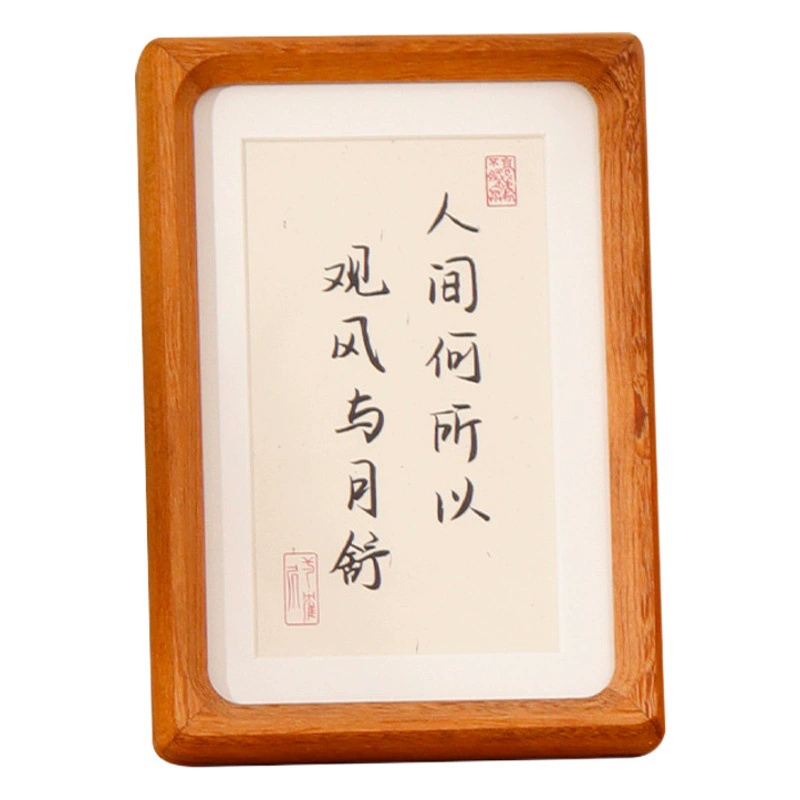 人间何所以
观风与月舒